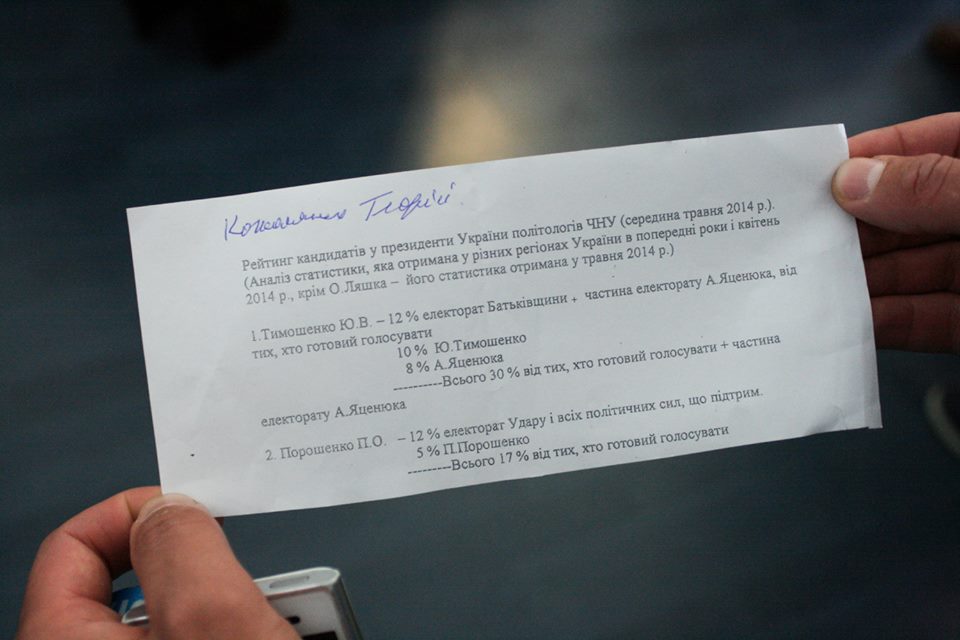 Георгій
Рейтинг кандидатів у президенти України політологів ЧНУ (середина травня 2014 р.).
(Аналіз статистики, яка отримана у різних регіонах України в попередні роки і квітень
2014 р., крім О.Ляшка – його статистика отримана у травня 2014 р.)
1.Тимошенко Ю.В. – 12 % електорат Батьківщини + частина електорату А.Яценюка, від
тих, хто готовий голосувати
10 % Ю.Тимошенко
8 % А.Яценюка
----------Всього 30 % від тих, хто готовий голосувати + частина
електорату А.Яценюка
2. Порошенко П.О. – 12 % електорат Удару і всіх політичних сил, що підтрим.
5 % П.Порошенко
---------Всього 17 % від тих, хто готовий голосувати